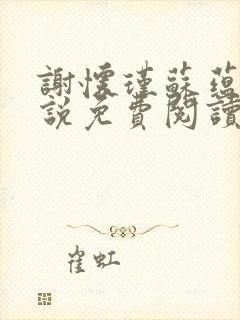 謝懷瑾蘇蘊
說免費閱讀
崔虹